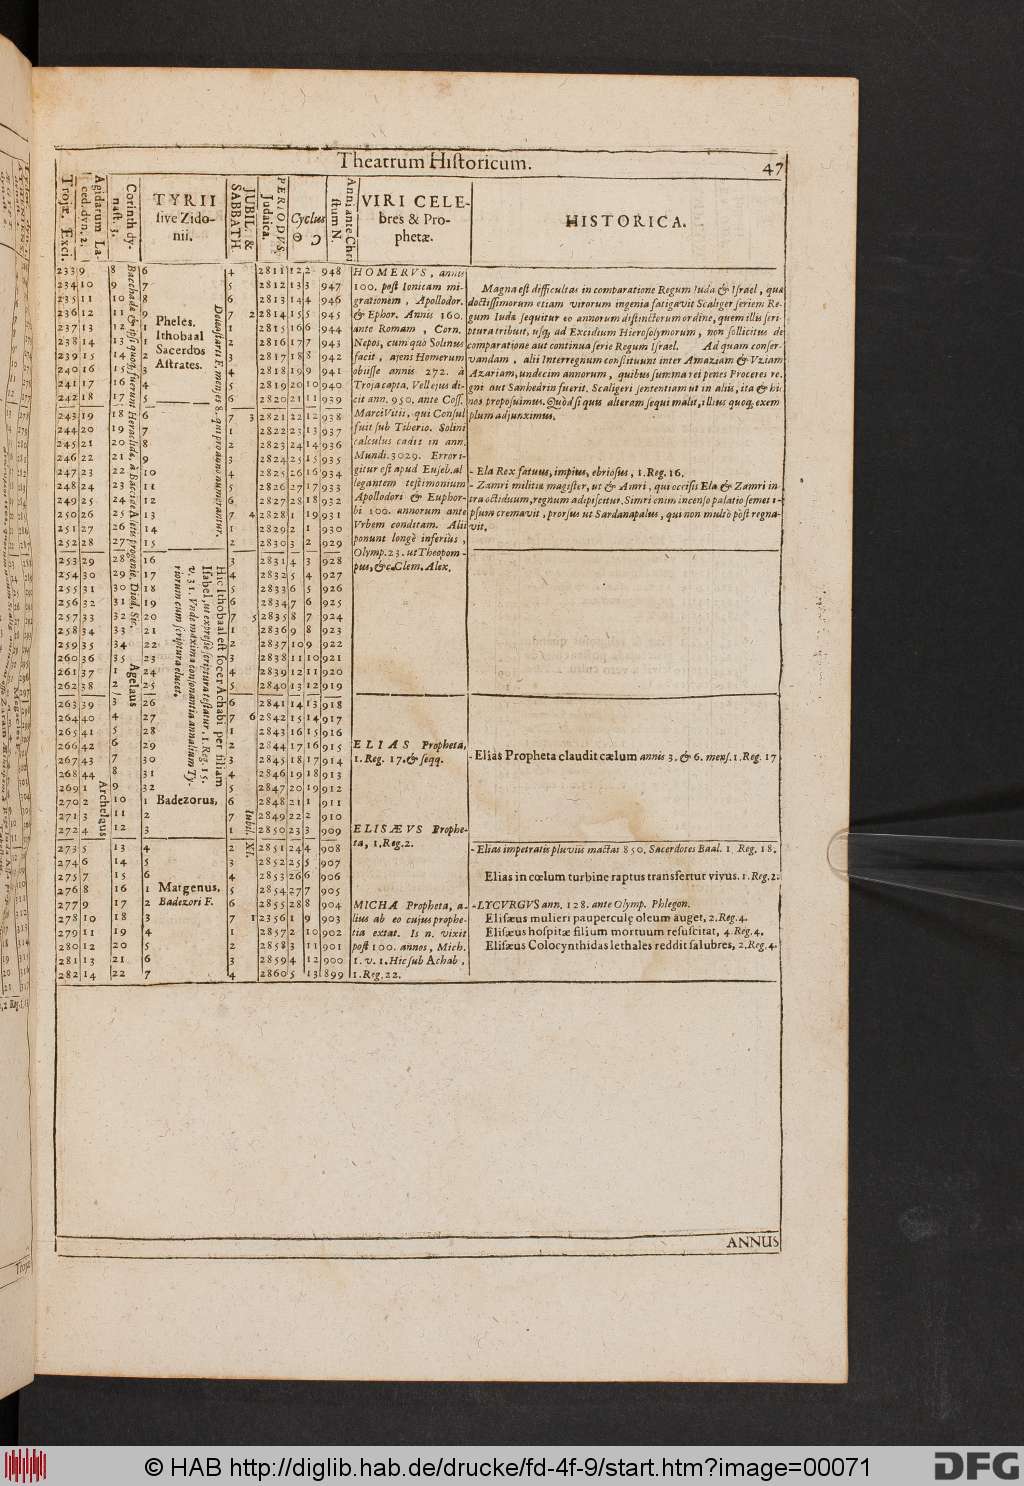 Theatrum Historicum.
47
Trojæ. Exci.
Agidarum La-
ced. dyn. 2.
Corinth dy-
nast. 3.
TYRII
sive Zido-
nii.
JUBIL. &
SABBATH.
PERIODVS.
Judaica.
Cyclus
☉ ☽
Anni ante Chri
stum N.
VIRI CELE-
bres & Pro-
phetæ.
HISTORICA.
233 9 8 6 4 2811 12 2 948
234 10 9 7 5 2812 13 3 947
235 11 10 8 6 2813 14 4 946
236 12 11 9 7 2 2814 15 5 945
237 13 12 1 1 2815 16 6 944
238 14 13 1 2 2816 17 7 943
239 15 14 2 3 2817 18 8 942
240 16 15 3 4 2818 19 9 941
241 17 16 4 5 2819 20 10 940
242 18 17 5 6 2820 21 11 939
243 19 18 6 7 3 2821 22 12 938
244 20 19 7 1 2822 23 13 937
245 21 20 8 2 2823 24 14 936
246 22 21 9 3 2824 25 15 935
247 23 22 10 4 2825 26 16 934
248 24 23 11 5 2826 27 17 933
249 25 24 12 6 2827 28 18 932
250 26 25 13 7 4 2828 1 19 931
251 27 26 14 1 2829 2 1 930
252 28 27 15 2 2830 3 2 929
253 29 28 16 3 2831 4 3 928
254 30 29 17 4 2832 5 4 927
255 31 30 18 5 2833 6 5 926
256 32 31 19 6 2834 7 6 925
257 33 32 20 7 5 2835 8 7 924
258 34 33 21 1 2836 9 8 923
259 35 34 22 2 2837 10 9 922
260 36 35 23 3 2838 11 10 921
261 37 1 24 4 2839 12 11 920
262 38 2 25 5 2840 13 12 919
263 39 3 26 6 2841 14 13 918
264 40 4 27 7 6 2842 15 14 917
265 41 5 28 1 2843 16 15 916
266 42 6 29 2 2844 17 16 915
267 43 7 30 3 2845 18 17 914
268 44 8 31 4 2846 19 18 913
269 1 9 32 5 2847 20 19 912
270 2 10 1 Badezorus, 6 2848 21 1 911
271 3 11 2 7 2849 22 2 910
272 4 12 3 1 2850 23 3 909
273 5 13 4 2 2851 24 4 908
274 6 14 5 3 2852 25 5 907
275 7 15 6 4 2853 26 6 906
276 8 16 1 Margenus, 5 2854 27 7 905
277 9 17 2 Badezori F. 6 2855 28 8 904
278 10 18 3 7 1 2356 1 9 903
279 11 19 4 1 2857 2 10 902
280 12 20 5 2 2858 3 11 901
281 13 21 6 3 2859 4 12 900
282 14 22 7 4 2860 5 13 899
Bacchada & ipsi quoq, fuerunt Heraclidæ, à Bacide Aletis progenie, Diod. Sic.
Agelaus
Archelaus
Pheles.
Ithobaal
Sacerdos
Astrates.
Deleastarti F. menses 8. qui pro anno numerantur.
Hic Ithobaal est socer Achabi per filiam
Isabel, ut expressè scriptura testatur, 1. Reg. 15.
v. 31. Unde maxima consonantia annalium Ty-
riorum cum scriptura elucet.
Jubil. XI.
HOMERVS, annis
100. post Ionicam mi-
grationem, Apollodor.
& Ephor. Annis 160.
ante Romam, Corn.
Nepos, cum quo Solinus
facit, ajens Homerum
obiisse annis 272. à
Troja capta. Vellejus di-
cit ann. 950. ante Coss.
Marci Vitii, qui Consul
fuit sub Tiberio. Solini
calculus cadit in ann.
Mundi. 3029. Error i-
gitur est apud Euseb. al
legantem testimonium
Apollodori & Euphor-
bi 100. annorum ante
Vrbem conditam. Alii
ponunt longè inferiùs,
Olymp. 23. ut Theopom-
pus, &c. Clem. Alex.
ELIAS Propheta,
1. Reg. 17. & seqq.
ELISÆVS Prophe-
ta, 1. Reg. 2.
MICHA Propheta, a-
lius ab eo cujus prophe-
tia extat. Is n. vixit
post 100. annos, Mich.
1. v. 1. Hic sub Achab,
1. Reg. 22.
Magna est difficultas in comparatione Regum Iuda & Israel, qua
doctissimorum etiam virorum ingenia fatigavit Scaliger seriem Re-
gum Iuda sequitur eo annorum distinctorum ordine, quem illis scri-
ptura tribuit, usq, ad Excidium Hierosolymorum, non sollicitus de
comparatione aut continua serie Regum Israel. Ad quam conser-
vandam, alii Interregnum constituunt inter Amaziam & Vziam
Azariam, undecim annorum, quibus summa rei penes Proceres re-
gni aut Sanhedrin fuerit. Scaligeri sententiam ut in aliis, ita & hic
nos proposuimus. Quòd si quis alteram sequi malit, illius quoq, exem
plum adjunximus.
- Ela Rex fatuus, impius, ebriosus, 1. Reg. 16.
- Zamri militia magister, ut & Amri, qui occisis Ela & Zamri in-
tra octiduum, regnum adipiscitur. Simri enim incenso palatio semet i-
psum cremavit, prorsus ut Sardanapalus, qui non multò pòst regna-
vit,
- Elias Propheta claudit cælum annis 3. & 6. mens. 1. Reg. 17
- Elias impetratis pluviis mactat 850. Sacerdotes Baal. 1. Reg. 18.
Elias in cœlum turbine raptus transfertur vivus. 1. Reg. 2.
- LYCVRGVS ann. 128. ante Olymp. Phlegon.
Elisæus mulieri pauperculę oleum auget, 2. Reg. 4.
Elisæus hospitæ filium mortuum resuscitat, 4. Reg. 4.
Elisæus Colocynthidas lethales reddit salubres, 2. Reg. 4.
ANNUS
© HAB http://diglib.hab.de/drucke/fd-4f-9/start.htm?image=00071
DFG